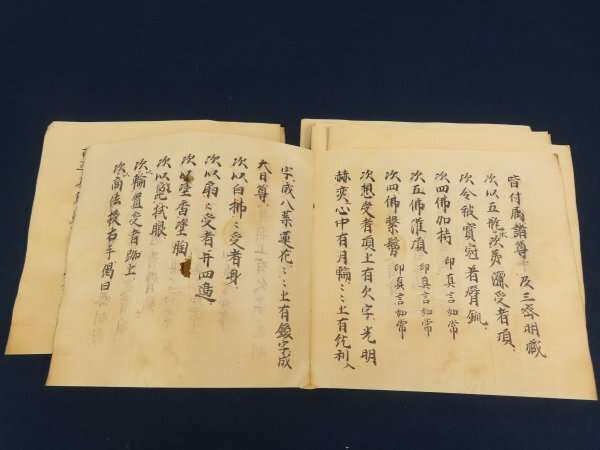 皆付属諸尊 及三密明藏
次以五瓶次第灌受者頂
次令被寳冠着臂釧
次四佛加持 印真言如常
次五佛灌頂 印真言如常
次四佛繋鬘 印真言如常
次想受者頂上有欠字光明
赫奕心中有月輪〻上有
字成八葉蓮花〻上有鍐字成
大日尊
次以白拂〻受者身
次以扇〻受者并四邉
次以塗香塗胸
次以箆拭眼
次輪置受者跏上
次商佉授右手偈曰